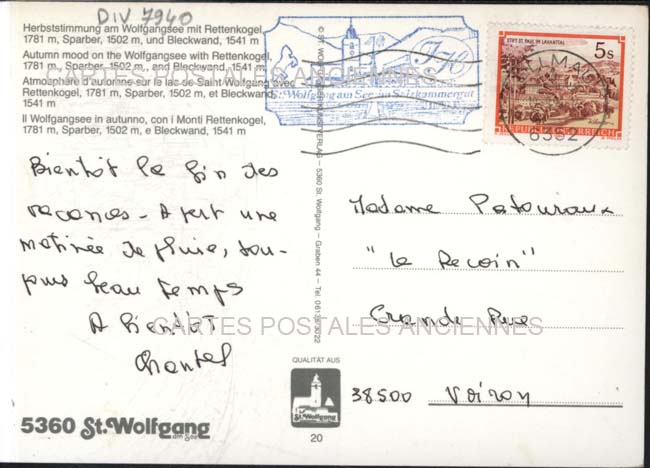 DIV 7940
Herbststimmung am Wolfgangsee mit Rettenkogel,
1781 m, Sparber, 1502 m, und Bleckwand, 1541 m
Autumn mood on the Wolfgangsee with Rettenkogel,
1781 m, Sparber, 1502 m, and Bleckwand, 1541 m
Atmosphère d'automne sur le lac de Saint-Wolfgang avec
Rettenkogel, 1781 m, Sparber, 1502 m, et Bleckwand,
1541 m
Il Wolfgangsee in autunno, con i Monti Rettenkogel,
1781 m, Sparber, 1502 m, e Bleckwand, 1541 m
CARTES POSTALES ANCIENNES
Bientôt la fin des
vacances - A part une
matinée de pluie, tou-
jours beau temps
A bientôt
Chantal
5360 St. Wolfgang
am See
St. Wolfgang am See im Salzkammergut
STIFT ST. PAUL IM LAVANTTAL
5s
REPUBLIK ÖSTERREICH
6352
VERLAG - 5360 St. Wolfgang - Graben 44 - Tel. 06138/3022
Madame Patouraux
"Le Recoin"
Grande Rue
CARTES POSTALES ANCIENNES
38500 Voiron
QUALITÄT AUS
St. Wolfgang
20